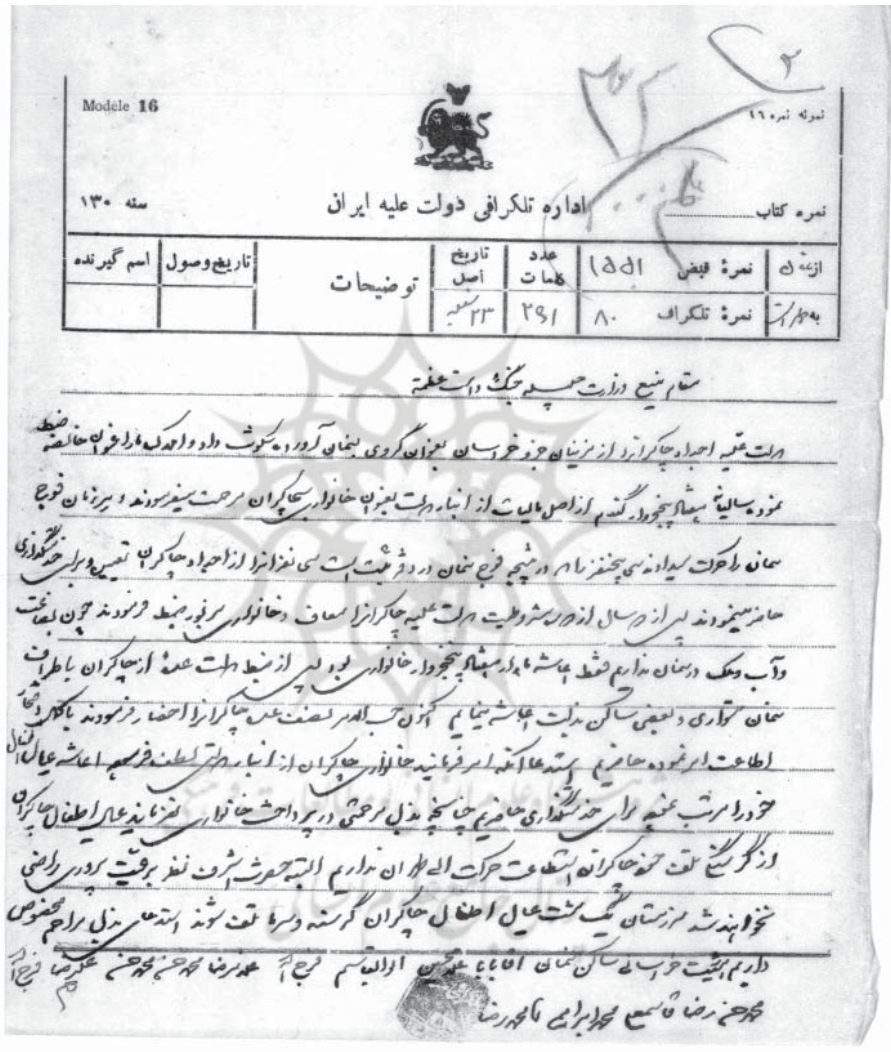 Modèle 16
نمونه نمره ۱۶
اداره تلگرافی دولت علیه ایران
سنه ۱۳۰
نمره کتاب
از نمرهٔ قبض ۱۵۵۱ عدد کلمات تاریخ اصل توضیحات تاریخ وصول اسم گیرنده
به نمرهٔ تلگراف ۸۰ ۲۹۱ ۲۳
مقام منیع وزارت جلیله جنگ دامت عظمته
دولت علیه اجداد چاکرانرا از مزینان جزو خراسان بعنوان گروی بسمنان آورده سکونت داد و املاک ماها را عنوان خالصه ضبط
نموده سالیانه پنجخروار گندم از اصل مالیات از انبار دولت بعنوان خانواری بچاکران مرحمت میفرمودند و
سمنان را حرکت میدادند سی پنجنفر در فوج سمنان در دفتر ثبت است سی نفر آنرا از اجداد چاکران تعیین و برای خدمتگذاری
حاضر مینمودند پس از سال از مشروطیت دولت علیه چاکرانرا معاف و خانواری ضبط فرمودند چون بضاعت
و آب و ملک در سمنان نداریم فقط اعاشه ماها پنجخروار خانواری بود پس از ضبط دولت از چاکران باطراف
سمنان متواری و بعضی ساکن بذلت اعاشه مینمایم اکنون حسب الامر چاکرانرا احضار فرمودند با کمال افتخار
اطاعت امر نموده حاضریم استدعا آنکه امر فرمائید خانواری چاکران از انبار دولتی لطف فرموده اعاشه عیال اطفال
خود را مرتب نموده برای خدمتگذاری حاضریم چنانچه بذل مرحمتی در پرداخت خانواری نفرمایند عیال اطفال چاکران
از گرسنگی تلف چاکران استطاعت حرکت الی طهران نداریم البته حضرت اشرف نظر برعیت پروری راضی
نخواهند شد زمستان عیال اطفال چاکران گرسنه و سرما تلف شوند استدعای بذل مراحم مخصوص
داریم خراسانی ساکن سمنان آقابابا ابوالقاسم فرج اله محمدرضا محمدحسن محمدحسن علیرضا فرج اله
محمدحسن رضا محمدابراهیم محمدرضا